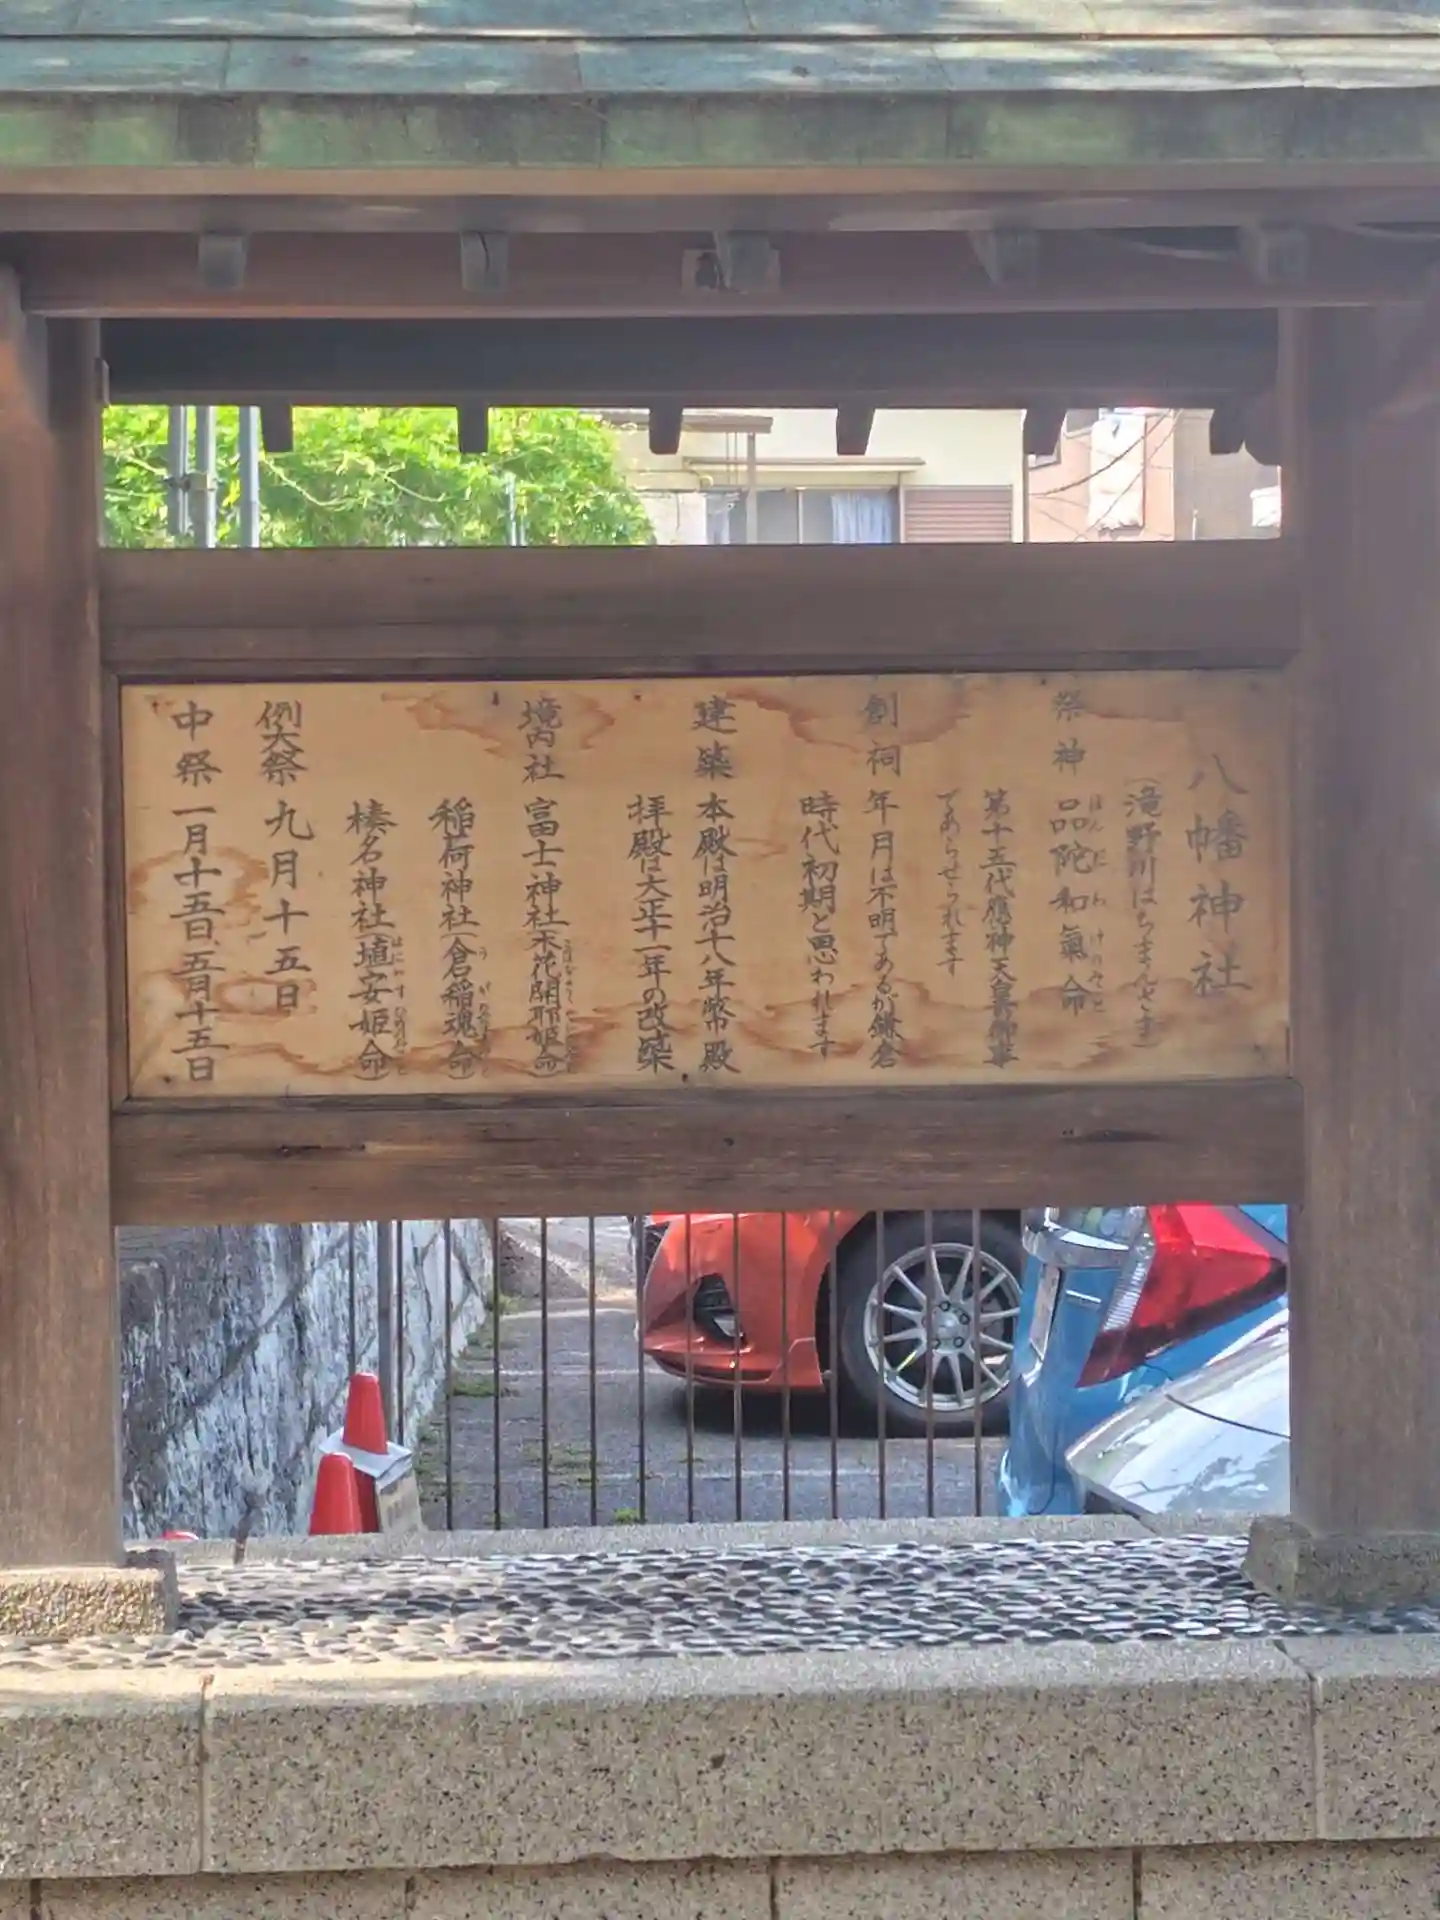 八幡神社
（滝野川はちまんさま）
祭神 品陀和氣命
ほんだわけのみこと
第十五代應神天皇御事
であらせられます
創祠 年月は不明であるが鎌倉
時代初期と思われます
建築 本殿は明治十八年幣殿
拝殿は大正十一年の改築
境内社 富士神社（木花開耶姫命）
稲荷神社（倉稲魂命）
榛名神社（埴安姫命）
例大祭 九月十五日
中祭 一月十五日、五月十五日